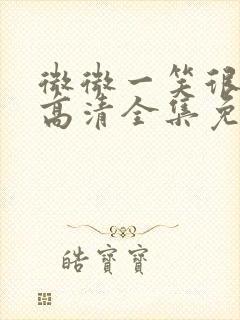 微微一笑很
高清全集免
皓寳寳